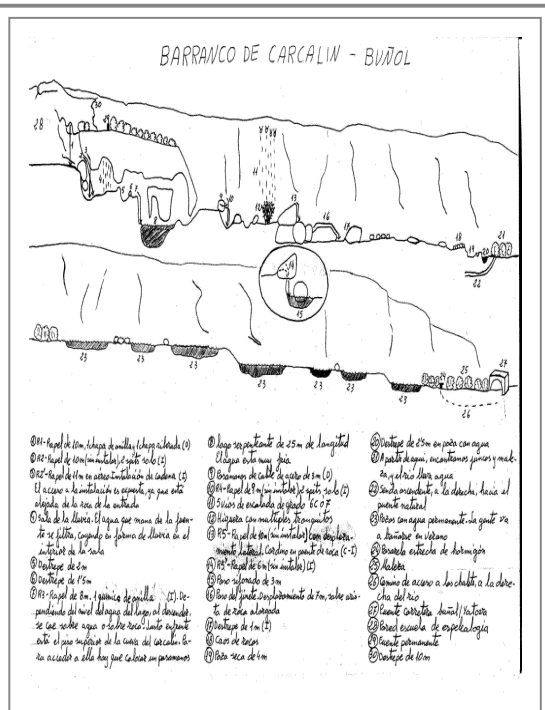 BARRANCO DE CARCALIN - BUÑOL
① R1-Rapel de 10m, 1 chapa de anilla, 1 chapa ribeada (D)
② R2-Rapel de 10m (sin instalar), 2 spits solo (I)
③ R2'-Rapel de 11m en aereo-Instalación de cadena (I)
El acceso a la instalación es expuesta, ya que está
alejada de la roca de la entrada
④ Sala de la lluvia. El agua que mana de la fuen-
te se filtra, cayendo en forma de lluvia en el
interior de la sala
⑤ Destrepe de 2m
⑥ Destrepe de 1'5m
⑦ R3-Rapel de 8m, 1 químico de anilla (I). De-
pendiendo del nivel del agua del lago, al descender,
se cae sobre agua o sobre roca. Justo enfrente
está el piso superior de la cueva del Carcalin. Pa-
ra acceder a ella hay que colocar un pasamanos
⑧ Lago serpenteante de 25m de longitud
El agua está muy fria
⑨ Pasamanos de cable de acero de 3m (D)
⑩ R4-Rapel de 7m (sin instalar), 2 spits solo (I)
⑪ 3 vias de escalada de grado 6C 07
⑫ Higuera con multiples tronquitos
⑬ R5-Rapel de 10m (sin instalar) con desplaza-
miento lateral. Cordino en puente de roca (C-I)
⑭ R5'-Rapel de 6m (sin instalar) (I)
⑮ Paso sifonado de 3m
⑯ Paso del jinete. Desplazamiento de 7m, sobre aris-
ta de roca alargada
⑰ Destrepe de 4m (I)
⑱ Caos de rocas
⑲ Poza seca de 4m
⑳ Destrepe de 2'5m en poza con agua
㉑ A partir de aqui, encontramos juncos y male-
za, y el rio lleva agua
㉒ Senda ascendente, a la derecha, hacia el
puente natural
㉓ Pozos con agua permanente. La gente va
a bañarse en verano
㉔ Pasarela estrecha de hormigón
㉕ Maleza
㉖ Camino de acceso a los chalets, a la dere-
cha del rio
㉗ Puente carretera buñol/Yatova
㉘ Pared escuela de espeleologia
㉙ Fuente permanente
㉚ Destrepe de 10m